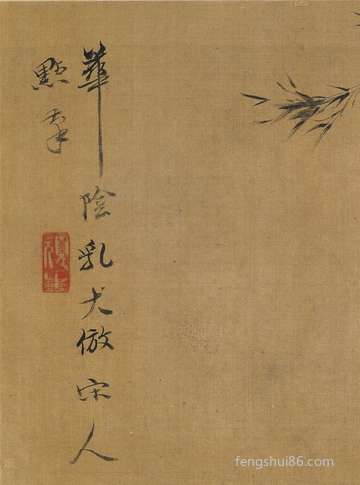 華陰乳犬倣宋人
點筆
fengshui86.com